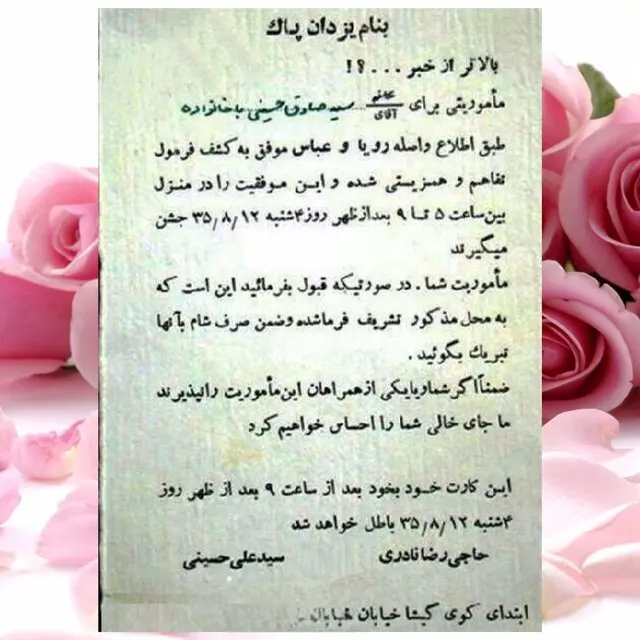 بنام یزدان پاک
بالاتر از خبر ...؟!
مأموریتی برای خانم آقای سید صادق حسینی باخانواده
طبق اطلاع واصله رویا و عباس موفق به کشف فرمول
تفاهم و همزیستی شده و این موفقیت را در منزل
بین ساعت ۵ تا ۹ بعدازظهر روز ۴شنبه ۳۵٫۸٫۱۲ جشن
میگیرند
مأموریت شما . در صورتیکه قبول بفرمائید این است که
به محل مذکور تشریف فرماشده وضمن صرف شام بآنها
تبریک بگوئید .
ضمناً اگر شما ویایکی از همراهان این مأموریت رانپذیرند
ما جای خالی شما را احساس خواهیم کرد
این کارت خود بخود بعد از ساعت ۹ بعد از ظهر روز
۴شنبه ۳۵٫۸٫۱۲ باطل خواهد شد
حاجی رضا نادری سیدعلی حسینی
ابتدای کوی گیشا خیابان خیابان